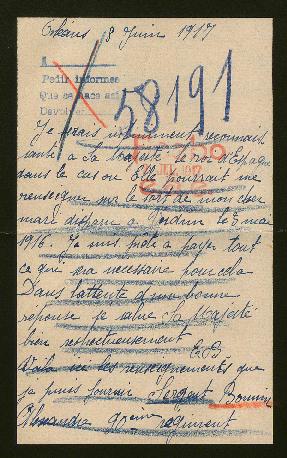 Orléans 8 Juin 1917
A
Pedir informes
Que se hace así
Devolver
58191
Je serais infiniment reconnais
sante à sa Majesté le roi d'Espagne
dans le cas ou Elle pourrait me
renseigner sur le sort de mon cher
mari disparu à Verdun le 5 mai
1916. Je suis prête à payer tout
ce que sera nécessaire pour cela
Dans l'attente d'une bonne
réponse je salue Sa Majesté
bien respectueusement
E. B
Voilà les renseignements que
je puis fournir Sergent Bonnin
Alexandre 90ième régiment